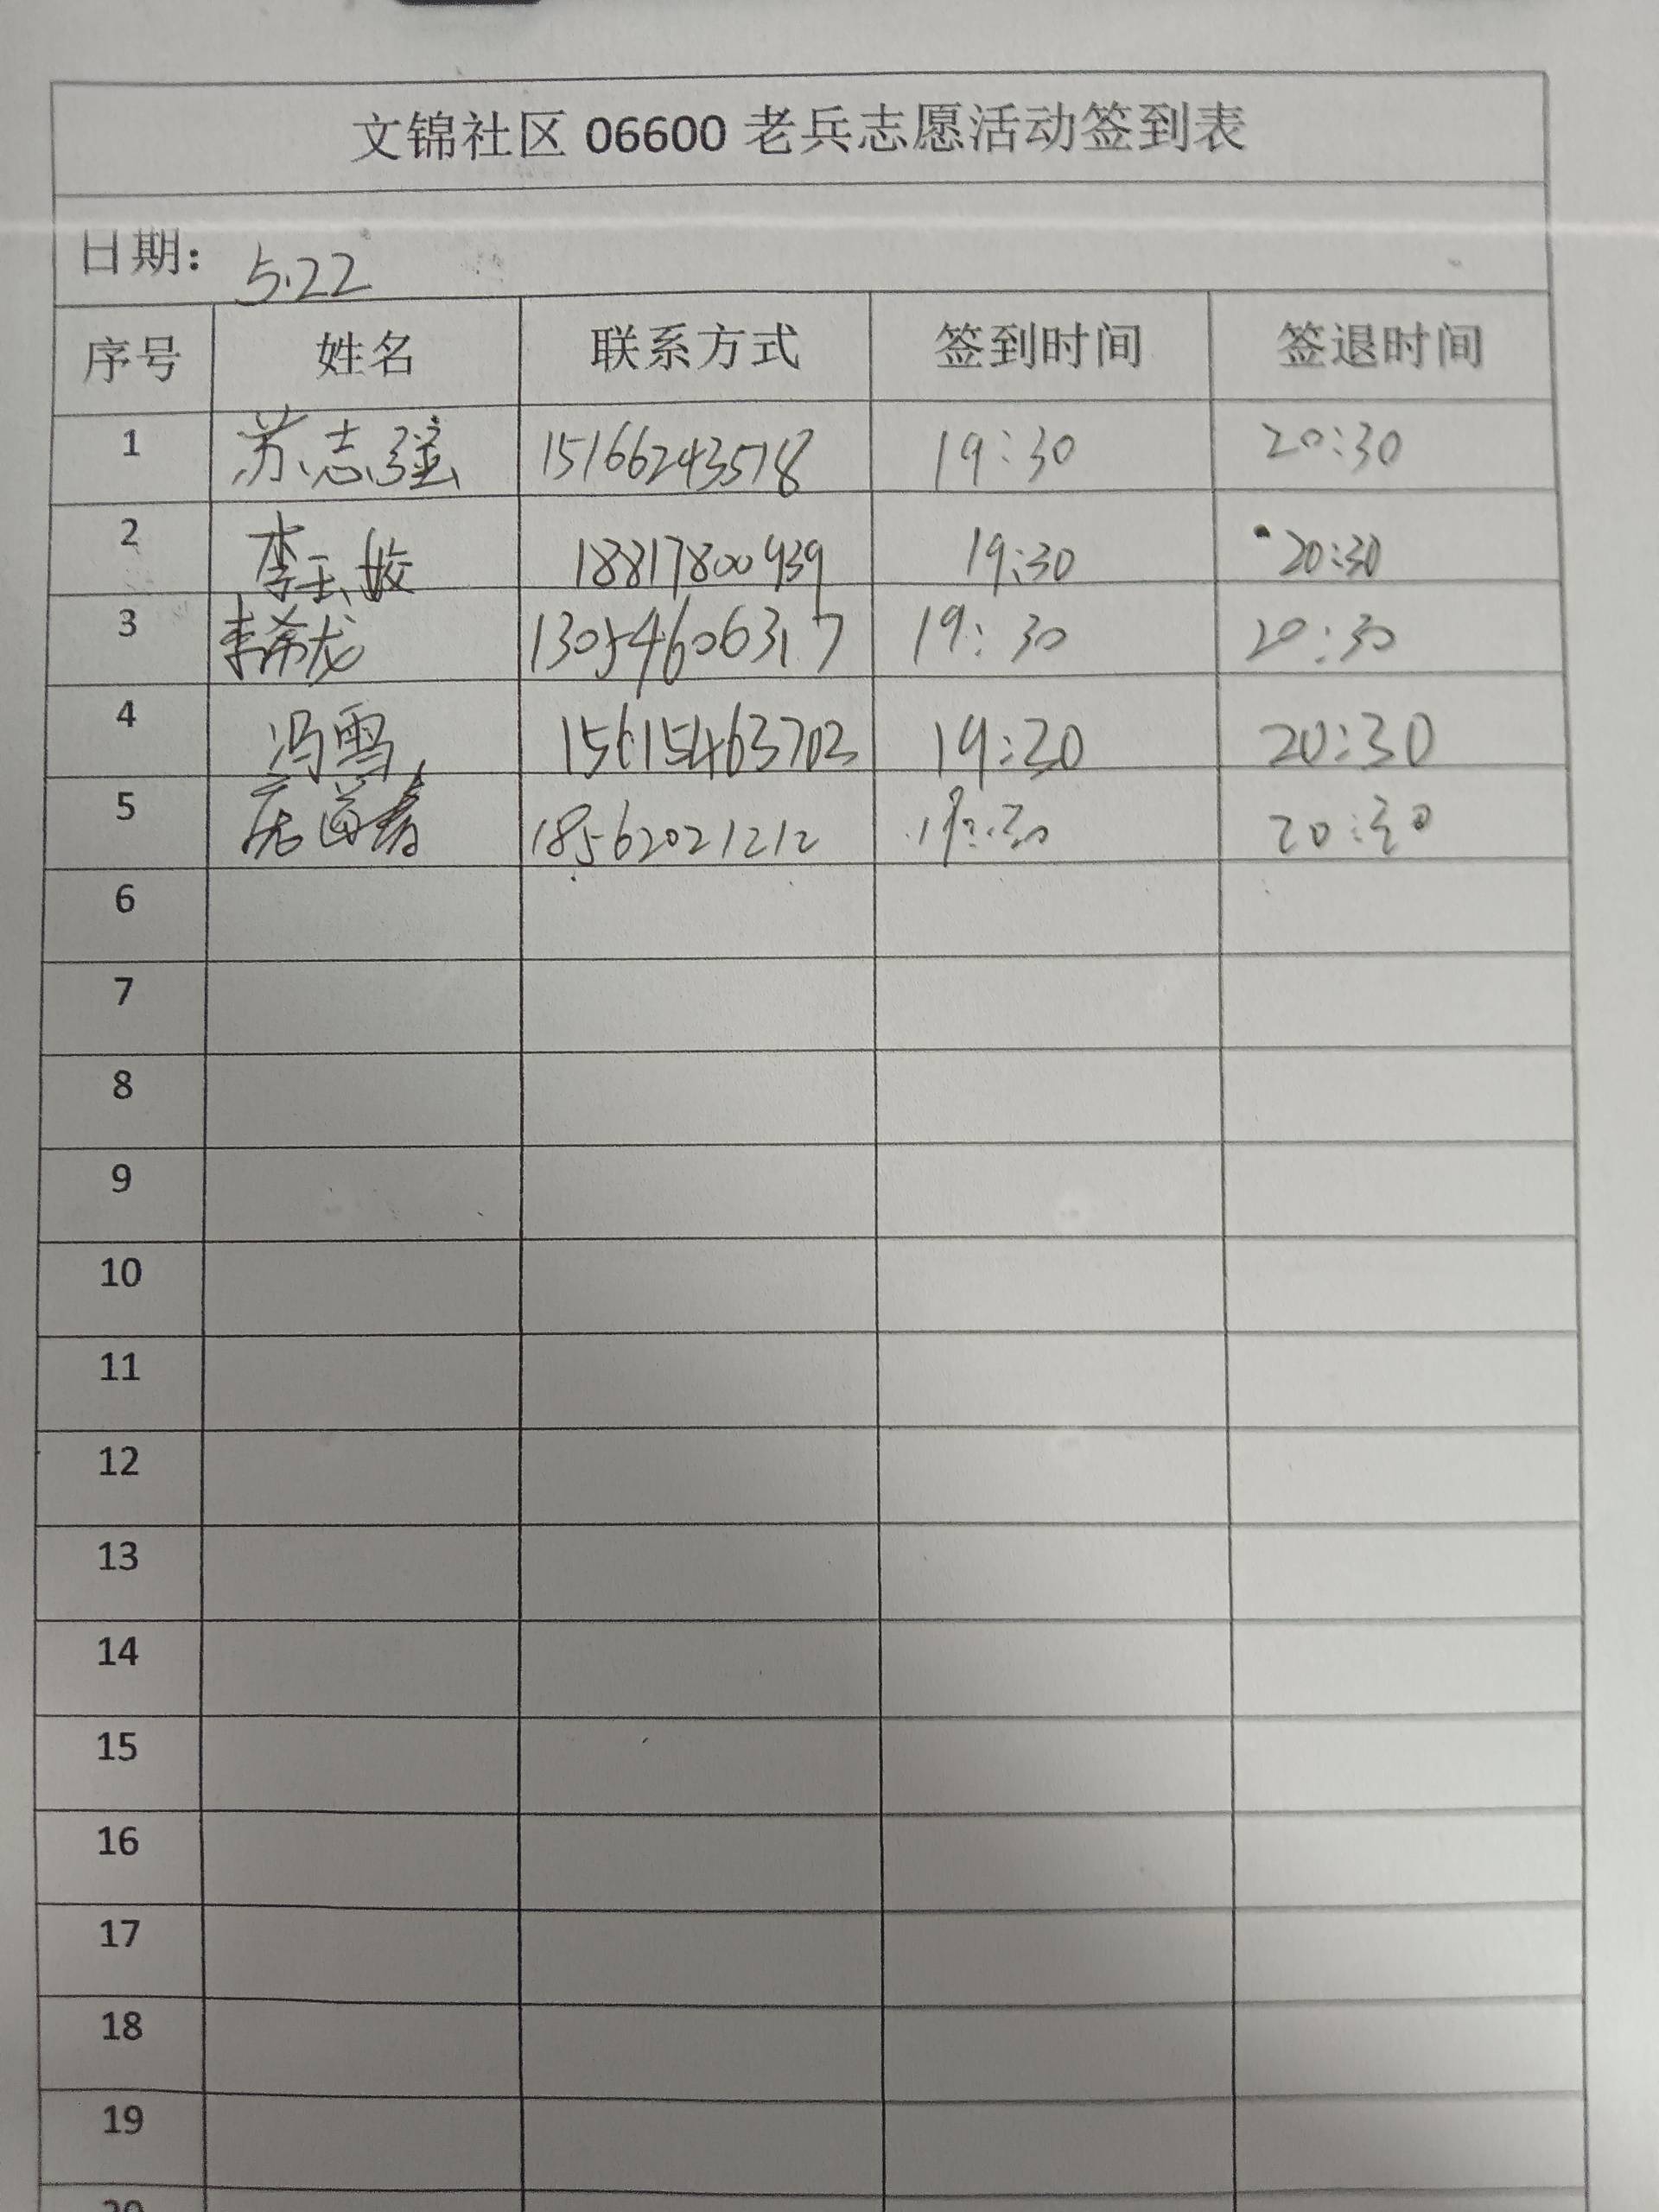 文锦社区 06600 老兵志愿活动签到表
日期： 5.22
序号 姓名 联系方式 签到时间 签退时间
1 苏志强 15166243518 19:30 20:30
2 李玉敏 18817800939 19:30 20:30
3 李希龙 13054606317 19:30 20:30
4 冯雪 15615463703 19:30 20:30
5 18562021212 19:30 20:30
6
7
8
9
10
11
12
13
14
15
16
17
18
19
20